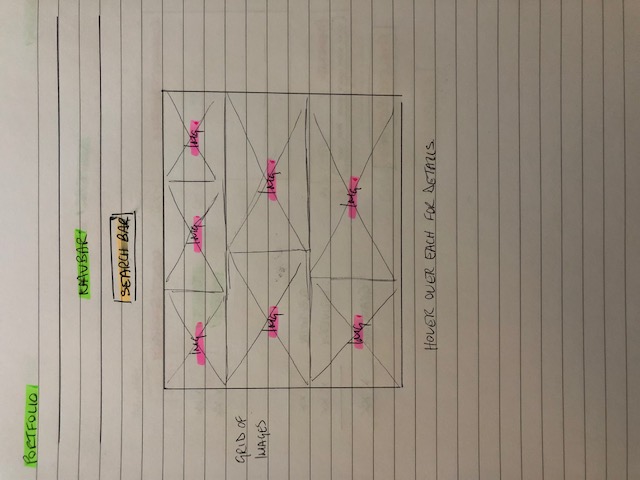 PORTFOLIO
NAVBAR
SEARCH BAR
IMG. IMG. IMG.
GRID OF
IMAGES
IMG. IMG.
IMG. IMG.
HOVER OVER EACH FOR DETAILS.